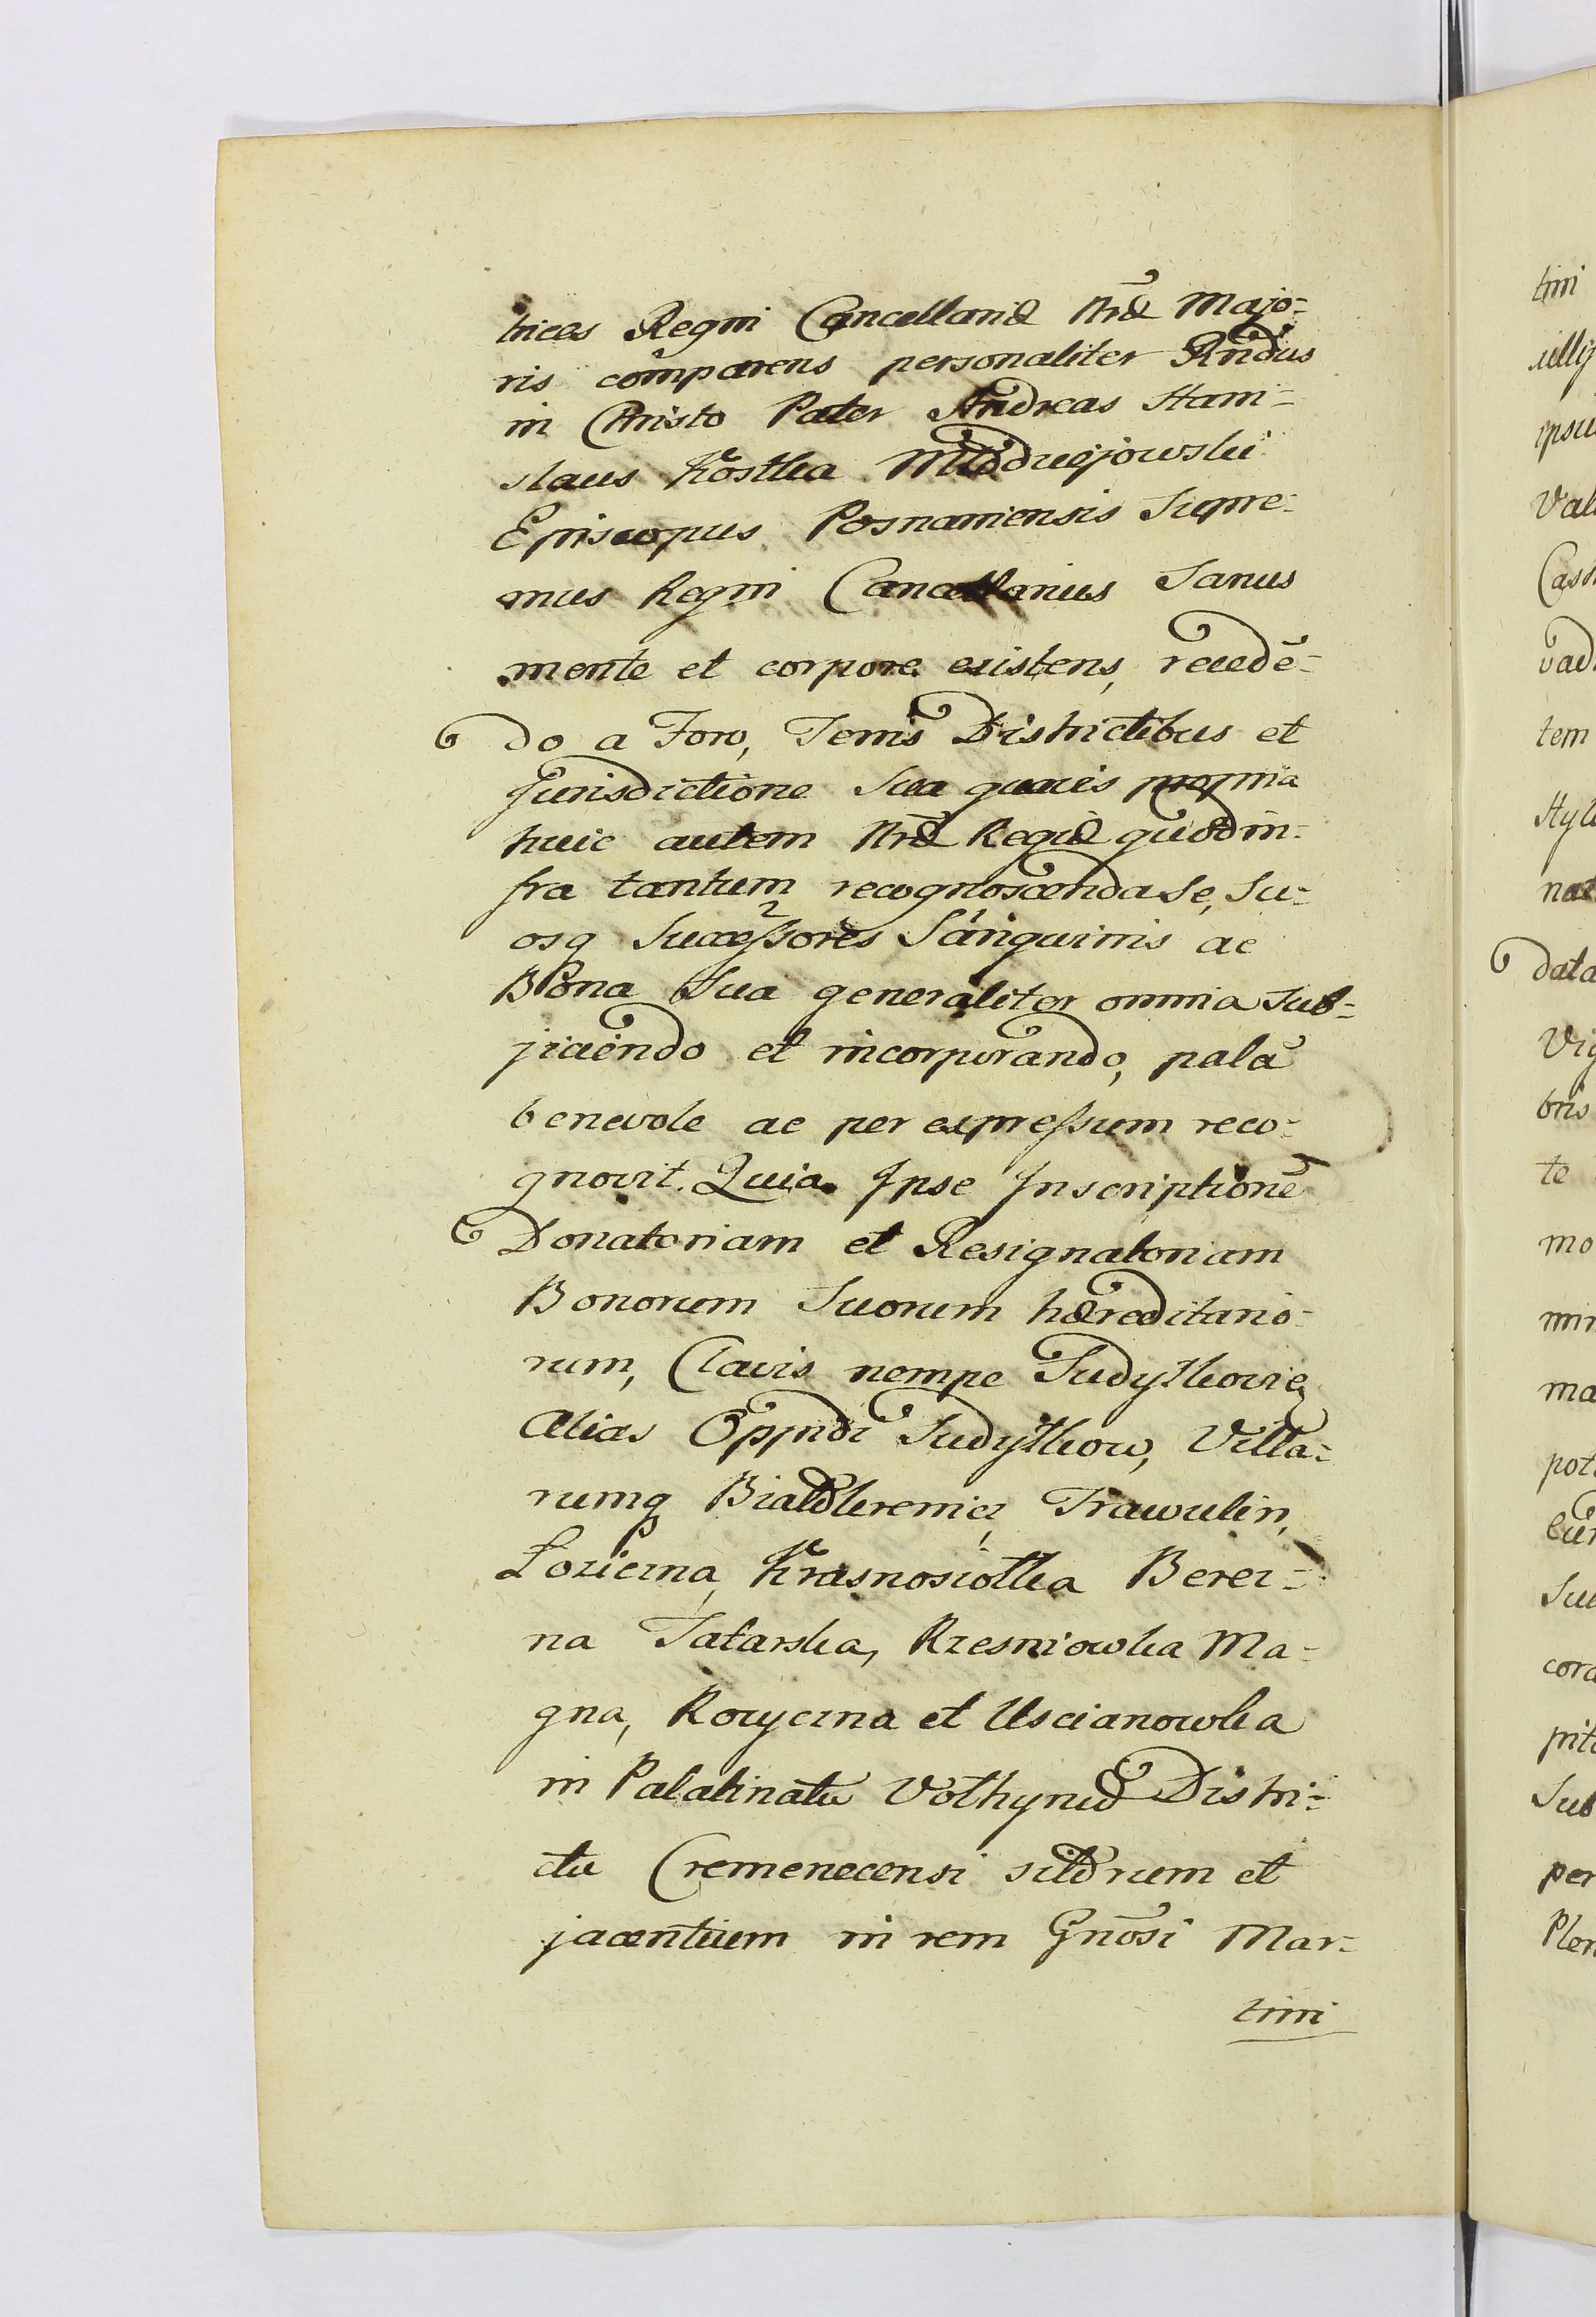 trices Regni Cancellariæ Nræ Majo-
ris comparens personaliter Rñdus
in Christo Pater Andreas Stani-
slaus Kostka Młodziejowski
Episcopus Posnaniensis Supre-
mus Regni Cancellarius Sanus
mente et corpore existens, recedē-
do a Foro, Terris Districtibus et
Jurisdictione Sua quavis propria
huic autem Nræ Regiæ quod in-
fra tantum recognoscenda Se, Su-
osq Successores Sánguinis ac
Bona Sua generaliter omnia Sub-
jiciendo et incorporando, palā
benevole ac per expressum reco-
gnovit. Quia Ipse Inscriptionē
Donatoriam et Resignatoriam
Bonorum Suorum hæreditario-
rum, Clavis nempe Sudyłkovie
alias Oppidi Sudyłkow, Villa-
rumq Białokrenicz, Trawulin,
Łozierna, Krasnosiołka Berez-
na Tatarska, Rzesniowka Ma-
gna, Rowyczna et Uscianowka
in Palatinatu Volhyniæ Distri-
ctu Cremenecensi sitorum et
jacentium in rem Gnōsi Mar-
tini
tini
ipsu
Val
vad
tem
data
Vig
bris
te
mo
ma
pot
Sub
per
Plen